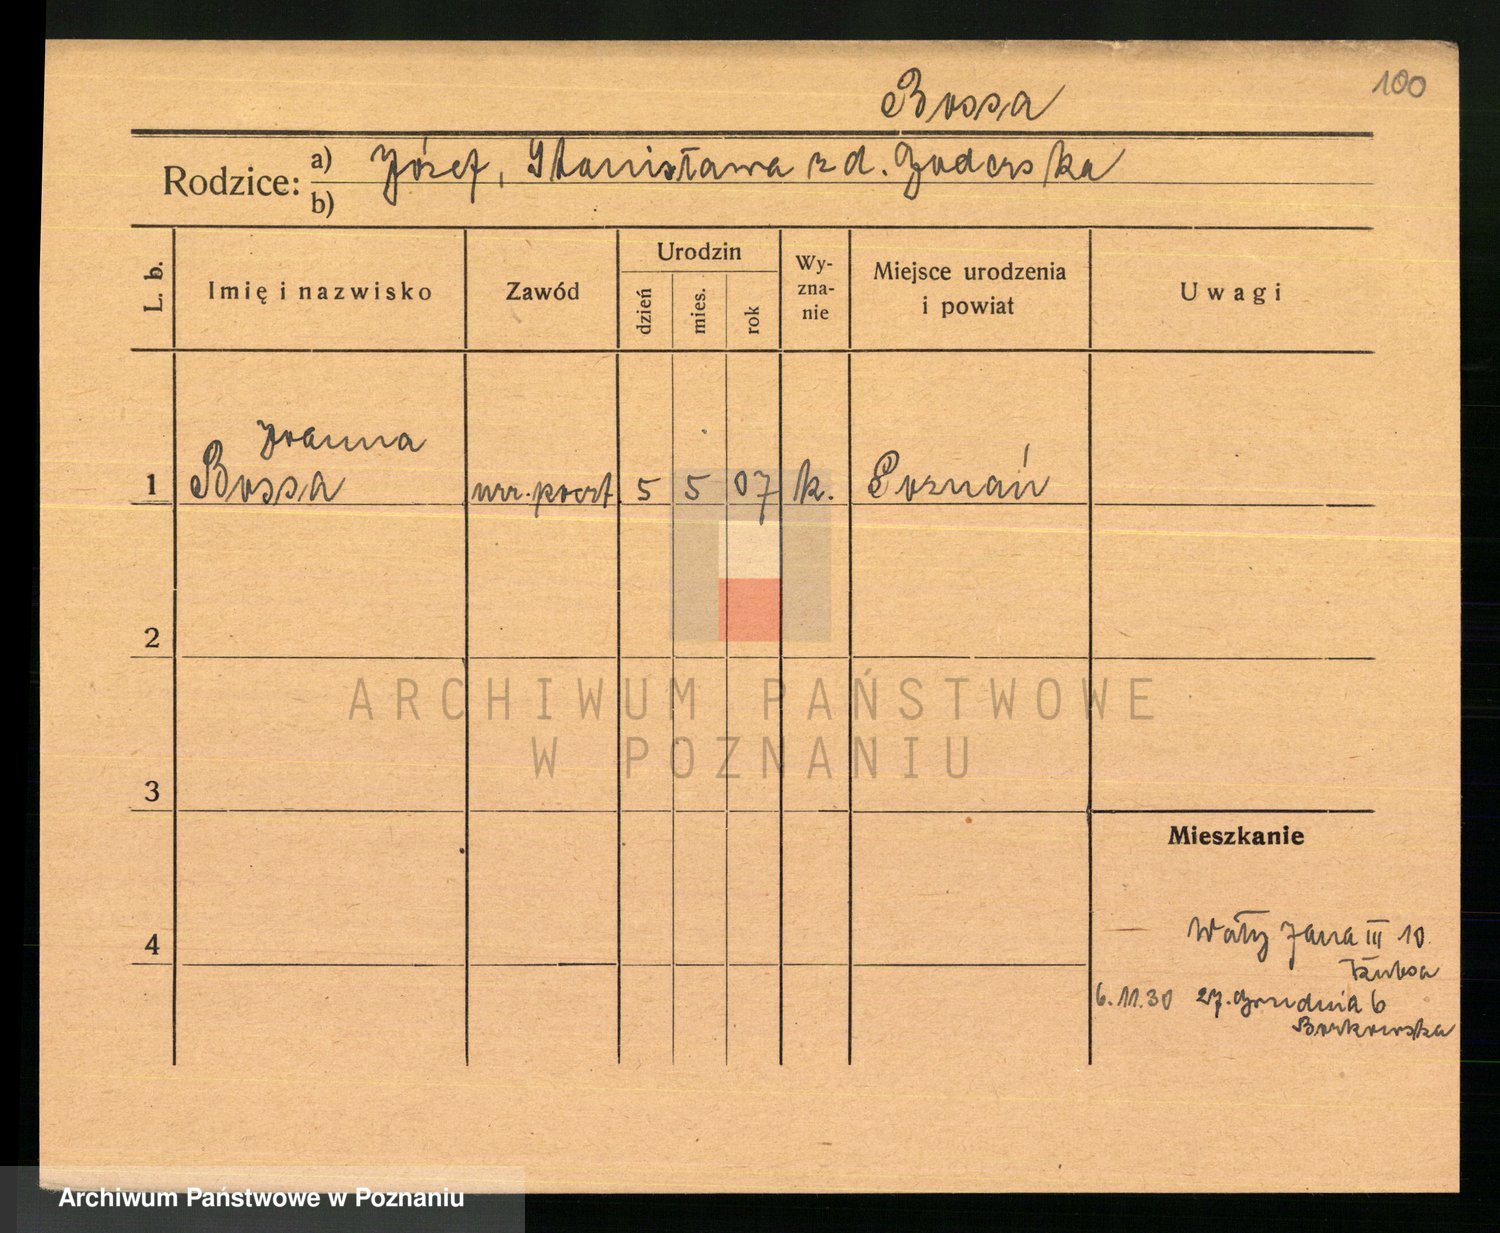 Bossa
100
Rodzice: a) Józef, Stanisława z d.
b)
L. b.
Imię i nazwisko
Zawód
Urodzin
dzień
mies.
rok
Wy-
zna-
nie
Miejsce urodzenia
i powiat
Uwagi
Joanna
1 Bossa urz. poczt. 5 5 07 k. Poznań
2
ARCHIWUM PAŃSTWOWE
W POZNANIU
3
Mieszkanie
4
Wały Jana III 10.
6.11.30 27. Grudnia 6
Borkowska
Archiwum Państwowe w Poznaniu